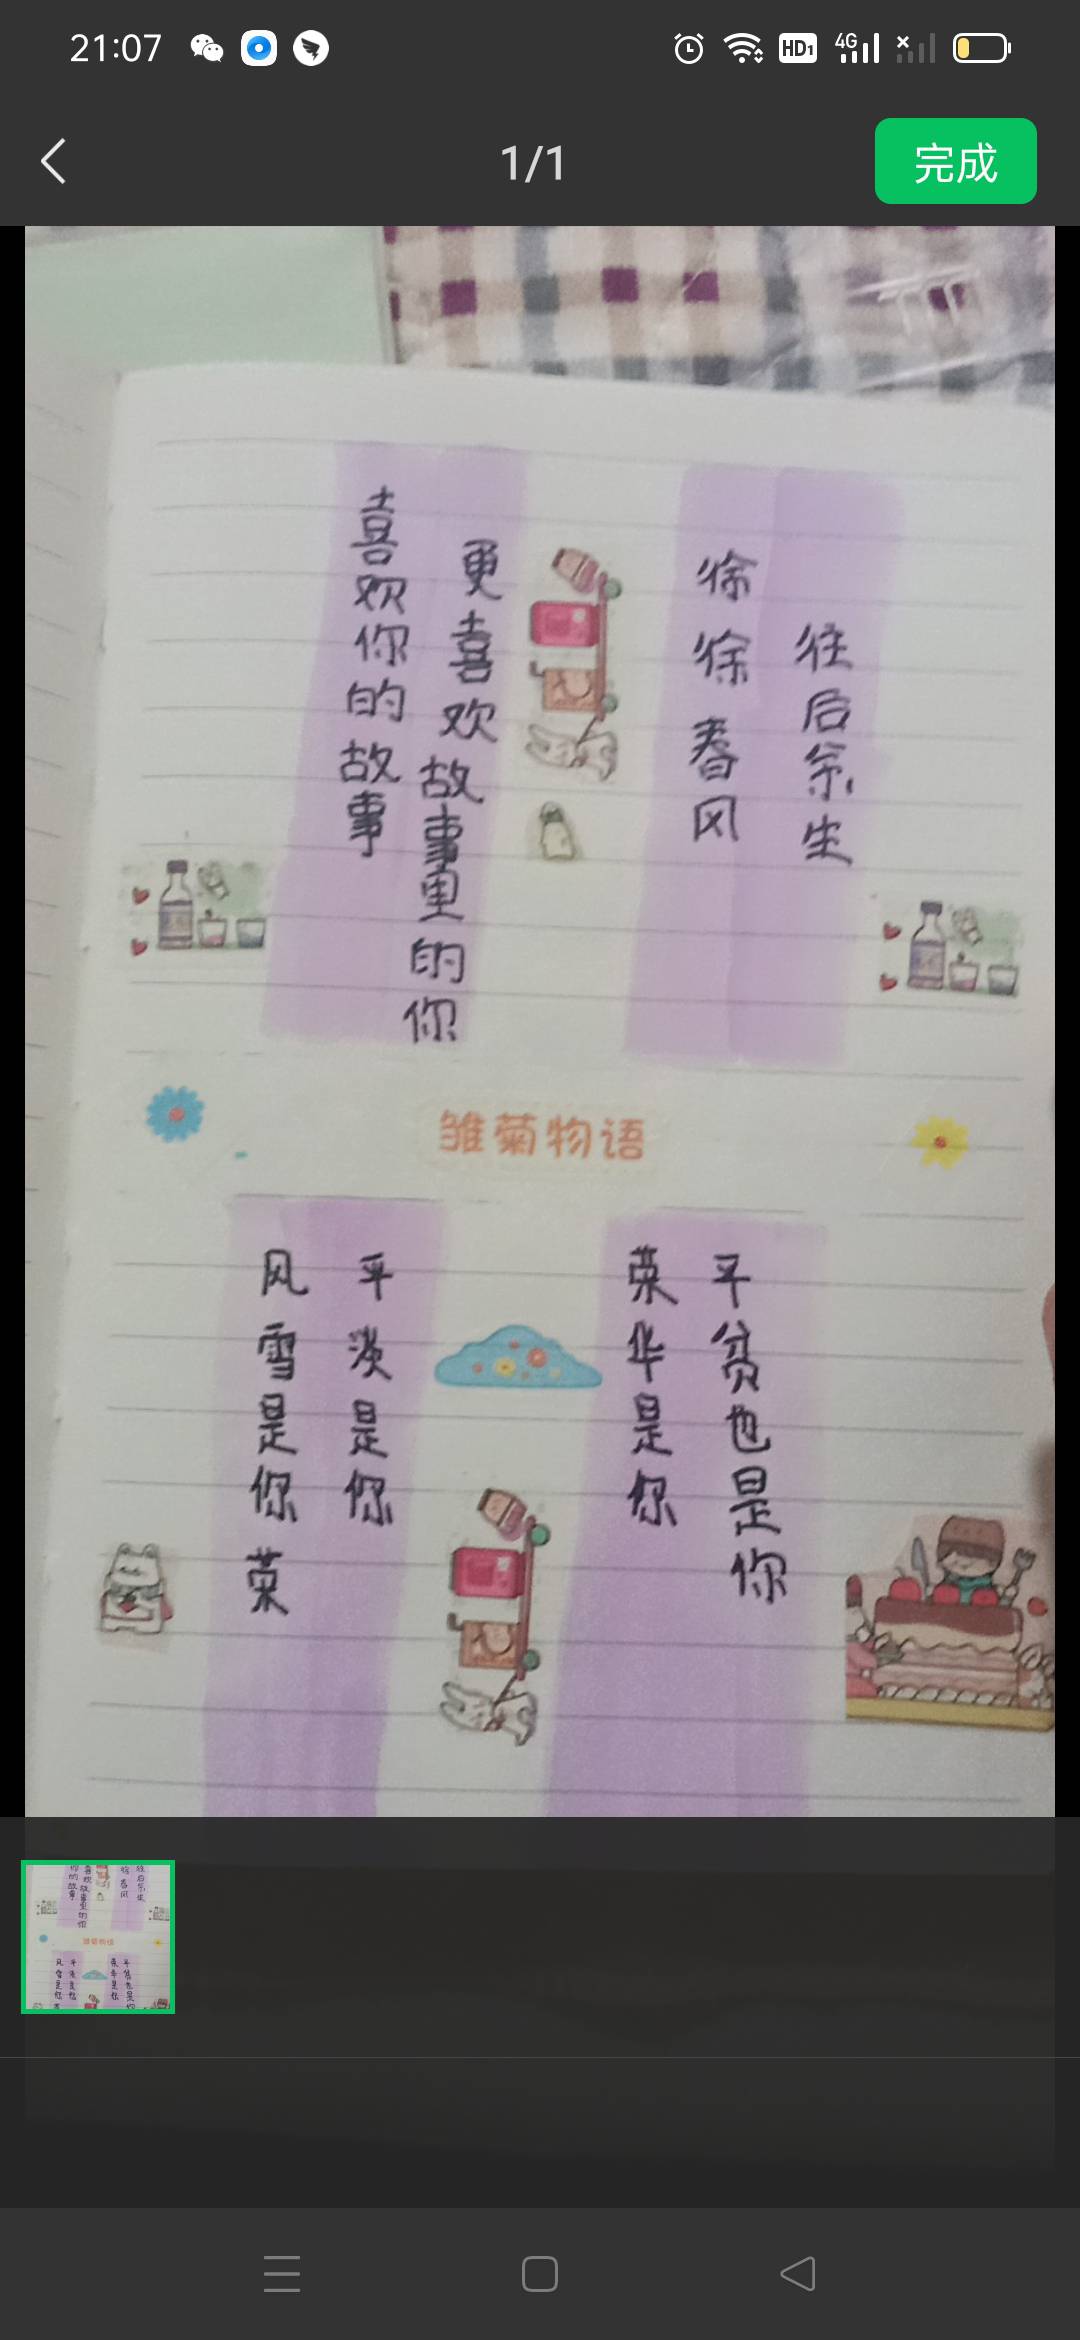 21:07
HD1
4G
1/1
完成
喜欢你的故事
更喜欢故事里的你
徐徐春风
往后余生
雏菊物语
风雪是你荣
平淡是你
荣华是你
平贫也是你